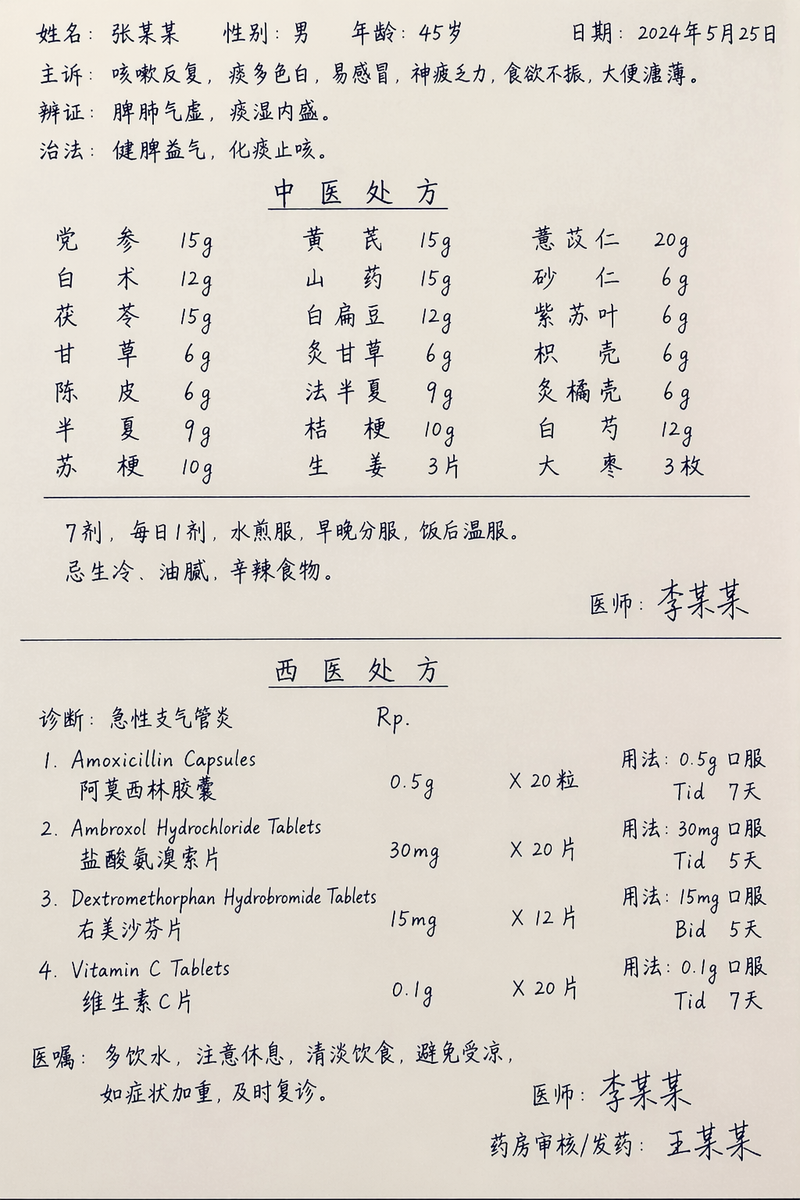 姓名：张某某 性别：男 年龄：45岁 日期：2024年5月25日
主诉：咳嗽反复，痰多色白，易感冒，神疲乏力，食欲不振，大便溏薄。
辨证：脾肺气虚，痰湿内盛。
治法：健脾益气，化痰止咳。
中医处方
党参 15g 黄芪 15g 薏苡仁 20g
白术 12g 山药 15g 砂仁 6g
茯苓 15g 白扁豆 12g 紫苏叶 6g
甘草 6g 炙甘草 6g 枳壳 6g
陈皮 6g 法半夏 9g 炙橘壳 6g
半夏 9g 桔梗 10g 白芍 12g
苏梗 10g 生姜 3片 大枣 3枚
7剂，每日1剂，水煎服，早晚分服，饭后温服。
忌生冷、油腻，辛辣食物。
医师：李某某
西医处方
诊断：急性支气管炎 Rp.
1. Amoxicillin Capsules 用法：0.5g 口服
阿莫西林胶囊 0.5g X 20粒 Tid 7天
2. Ambroxol Hydrochloride Tablets 用法：30mg 口服
盐酸氨溴索片 30mg X 20片 Tid 5天
3. Dextromethorphan Hydrobromide Tablets 用法：15mg 口服
右美沙芬片 15mg X 12片 Bid 5天
4. Vitamin C Tablets 用法：0.1g 口服
维生素C片 0.1g X 20片 Tid 7天
医嘱：多饮水，注意休息，清淡饮食，避免受凉，
如症状加重，及时复诊。
医师：李某某
药房审核/发药：王某某